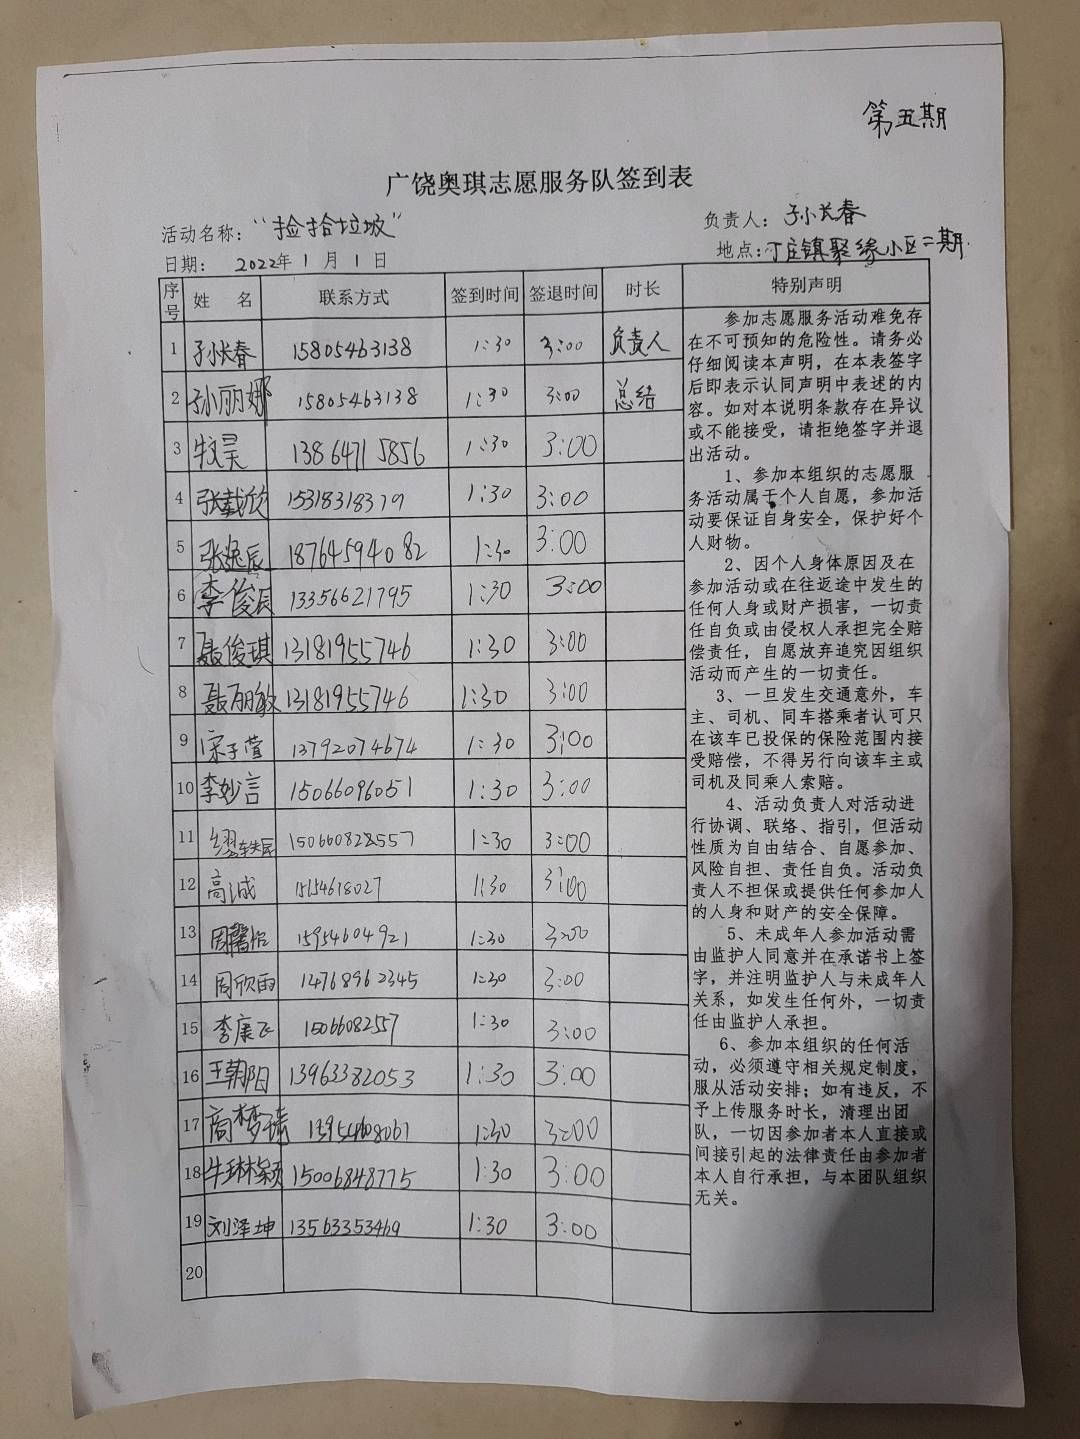 第五期
广饶奥琪志愿服务队签到表
活动名称：“捡拾垃圾”
负责人：孙长春
日期：2022年1月1日
地点：丁庄镇聚缘小区二期.
序号 姓名 联系方式 签到时间 签退时间 时长 特别声明
1 孙长春 15805463138 1:30 3:00 负责人
2 孙丽娜 15805463138 1:30 3:00 总结
3 13864715856 1:30 3:00
4 15318318379 1:30 3:00
5 张逸辰 18764594082 1:30 3:00
6 李俊辰 13356621795 1:30 3:00
7 聂俊琪 13181955746 1:30 3:00
8 聂丽敏 13181955746 1:30 3:00
9 宋子萱 13792074674 1:30 3:00
10 李妙言 15066096051 1:30 3:00
11 150660828557 1:30 3:00
12 高诚 15154618027 1:30 3:00
13 周馨怡 15954604921 1:30 3:00
14 周欣雨 14768962345 1:30 3:00
15 李康飞 15066082557 1:30 3:00
16 王朝阳 13963382053 1:30 3:00
17 商梦 1:30 3:00
18 牛琳颖 15006848775 1:30 3:00
19 刘泽坤 13563353469 1:30 3:00
20
参加志愿服务活动难免存
在不可预知的危险性。请务必
仔细阅读本声明，在本表签字
后即表示认同声明中表述的内
容。如对本说明条款存在异议
或不能接受，请拒绝签字并退
出活动。
1、参加本组织的志愿服
务活动属于个人自愿，参加活
动要保证自身安全，保护好个
人财物。
2、因个人身体原因及在
参加活动或在往返途中发生的
任何人身或财产损害，一切责
任自负或由侵权人承担完全赔
偿责任，自愿放弃追究因组织
活动而产生的一切责任。
3、一旦发生交通意外，车
主、司机、同车搭乘者认可只
在该车已投保的保险范围内接
受赔偿，不得另行向该车主或
司机及同乘人索赔。
4、活动负责人对活动进
行协调、联络、指引，但活动
性质为自由结合、自愿参加、
风险自担、责任自负。活动负
责人不担保或提供任何参加人
的人身和财产的安全保障。
5、未成年人参加活动需
由监护人同意并在承诺书上签
字，并注明监护人与未成年人
关系，如发生任何外，一切责
任由监护人承担。
6、参加本组织的任何活
动，必须遵守相关规定制度，
服从活动安排；如有违反，不
予上传服务时长，清理出团
队，一切因参加者本人直接或
间接引起的法律责任由参加者
本人自行承担，与本团队组织
无关。